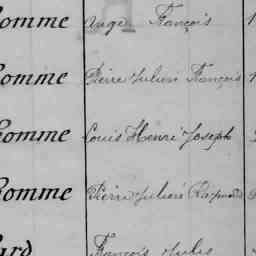 homme Ange François
homme Pierre Julien François
homme Louis Henri Joseph
homme Pierre Julien Raymond
François Jules